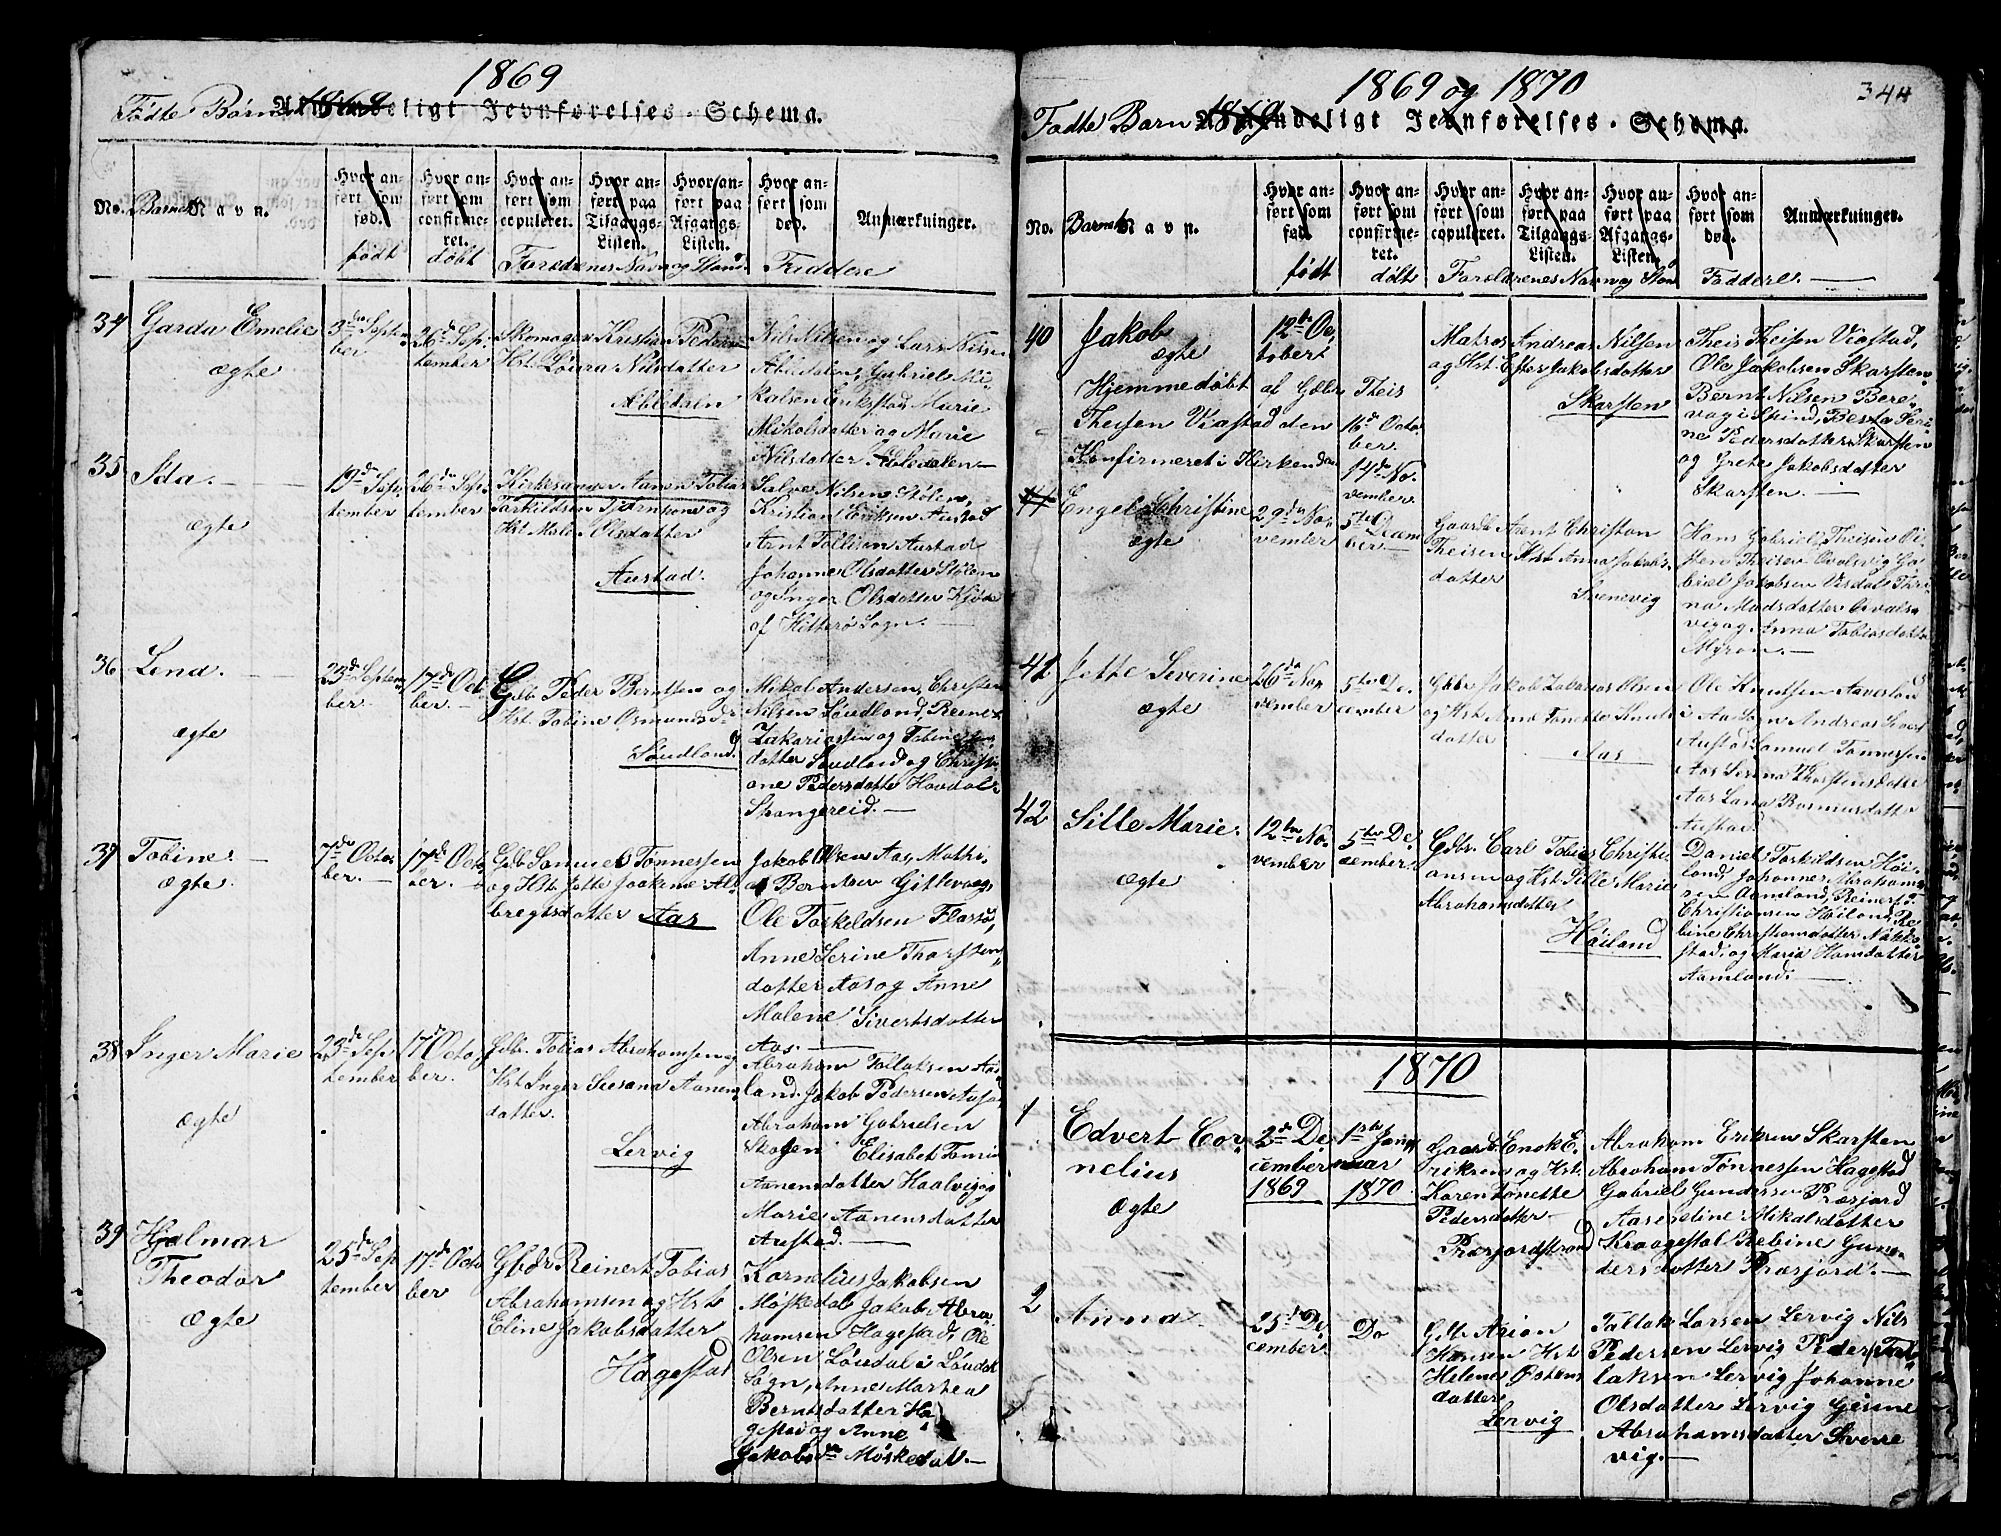 1869
Fødte Børn 1869
Almindeligt Jevnførelses-Schema.
No.
Barnets Navn.
Hvor anført som fød.
født
Hvor anført som confirmeret.
døbt
Hvor anført som copuleret.
Hvor anført paa Tilgangs-Listen.
Hvor anført paa Afgangs-Listen.
Forældrenes Navn og Stand
Hvor anført som død.
Faddere
Anmærkninger.
34 Garda Emelie
ægte
3die September
26de September
Skomager Kristian Pedersen
Hst. Loura Nilsdatter
Abledalen
Nils Nilsen og Lars Nilsen
Abledalen, Gabriel Mi-
kalsen Eriksstad, Marie
Mikalsdatter og Marie
Nilsdatter Abledalen
35 Ida.
ægte
19de September
26de September
Kirkesanger Aanen Tobias
Tarkildsen Tjørnhom og
Hst Male Olsdatter
Austad.
Salve Nilsen Stølen,
Kristian Eriksen Austad
Arnt Tollisen Austad
Johanne Olsdatter Stølen
og Inger Olsdatter Kjøde
af Hitterø Sogn.
36 Lena.
ægte
23de September.
17de October.
Gdb Peder Berntsen og
Hst. Tobine Osmundsd.
Søudland
Mikal Andersen, Christen
Nilsen Søudland, Reinert
Zakariassen og Tobine
datter Søudland og Christi-
ane Pedersdatter Haadal
Spangereid.
37 Tobine.
ægte.
7de October.
17de October.
Gdb. Samuel Tønnessen
og Hst. Jette Joakime Al-
bregtsdatter Aas
Jakob Olsen Aas, Mathi-
as Berntsen Gitlevaag,
Ole Torkeldsen Flarsø,
Anne Serine Thorsten-
datter Aas og Anne
Malene Sivertsdatter
Aas.
38 Inger Marie
ægte
23de September
17de October.
Gdb. Tobias Abrahamsen og
Hst. Inger Susana Aanens-
datter.
Lervig
Abraham Tollaksen Aas-
land, Jakob Pedersen
Abraham Gabrielsen
Skogen Elisabet Tomine
Aanensdatter Haalvig og
Marie Aanensdatter
Austad.
39 Hjalmar
Theodor
ægte
25de September
17de October
Gbdr Reinert Tobias
Abrahamsen og Hst
Eline Jakobsdatter
Hagestad
Kornelius Jakobsen
Møskedal, Jakob Abra-
hamsen Hagestad, Ole
Olsen Løudal i Løudals
Sogn, Anne Martea
Berntsdatter Ha-
gestad og Anne
Jakobsdr Møskedal.
1869 og 1870
344
Fødte Børn 1869
Almindeligt Jevnførelses-Schema.
No.
Barnets Navn.
Hvor anført som fød.
født
Hvor anført som confirmeret.
døbt
Hvor anført som copuleret.
Hvor anført paa Tilgangs-Listen.
Hvor anført paa Afgangs-Listen.
Forældrenes Navn og Stand
Hvor anført som død.
Faddere.
Anmærkninger.
40 Jakob
ægte
12te October
Hjemmedøbt af Gdbr. Theis
Theisen Viastad den 16de October.
Konfirmeret i Kirken den 14de November
Matros Andreas Nilsen
og Hst. Ester Jakobsdatter
Skarsten
Theis Theisen Viastad,
Ole Jakobsen Skarsten
Bernt Nilsen Bere-
vog i Spind, Berta Seri-
ne Pedersdatter Skarsten
og Grete Jakobsdatter
Skarsten.
Engel Christine
ægte
29de November
5te December
Gaardb Arent Christian
Theisen Hst Anna Jakobs-
datter
Svenevig
Hans Gabriel Theisen Oi-
en Theisen Ovalsvig Ga-
briel Jakobsen Viedal Thri-
na Madsdatter Ovals-
vig og Anna Tobiasdatter
Myron.
41 Jette Severine
ægte
26de November
5te December
Gdbr Jakob Zakarias Olsen
og Hst. Ane Tonette Knuts-
datter
Aas
Ole Knutsen Aavestad
i Aa Sogn Andreas
Austad Samuel Tønnessen
Aas Serina Thorstensdatter
Aas Lana Rasmusdatter
Austad.
42 Sille Marie.
ægte
12te November
5te December.
Gdbr. Carl Tobias Christi-
ansen og Hst Sille Marie
Abrahamsdatter
Høiland
Daniel Torkildsen Høi-
land, Johannes Abraham-
sen Aamland, Reinert
Christiansen Høiland, Re-
bine Christiansdatter
stad, og Maria Hansdatter
Aamland.
1870
1 Edvert Cor-
nelius
ægte
2de December
1869
1ste Januar
1870
Gaardb. Enok E-
riksen og Hst.
Karen Tonette
Pedersdatter
Præsjordstrand
Abraham Eriksen Skarsten
Abraham Tønnessen Hagestad
Gabriel Gundersen Præsjord
Aaseneline Mikalsdatter
Kraagestal Rebine Gun-
dersdatter Præsjord.
2 Anna.
25de December
Do
Gdb. Arion
Hansen Hst
Helene Østens-
datter
Lervig
Tallak Larsen Lervig Nils
Pedersen Lervig Peder Tal-
laksen Lervig Johanne
Olsdatter Lervig Gesine
Abrahamsdatter Svene-
vig.